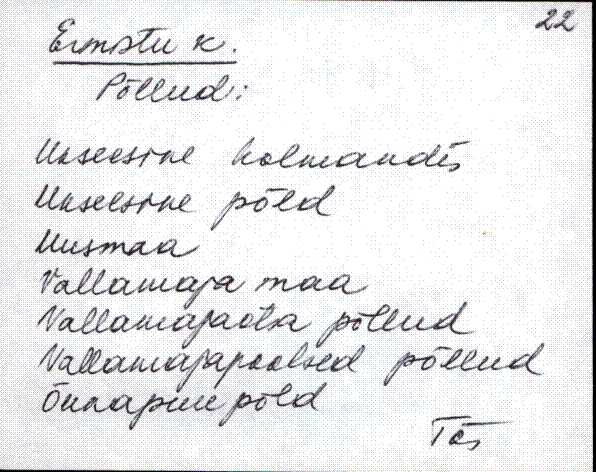 22
Ernstu k.
Põllud:
Ukseesine kolmandis
Ukseesine põld
Uusmaa
Vallamaja maa
Vallamajaotsa põllud
Vallamajapoolsed põllud
Õunapuu põld
Tõs